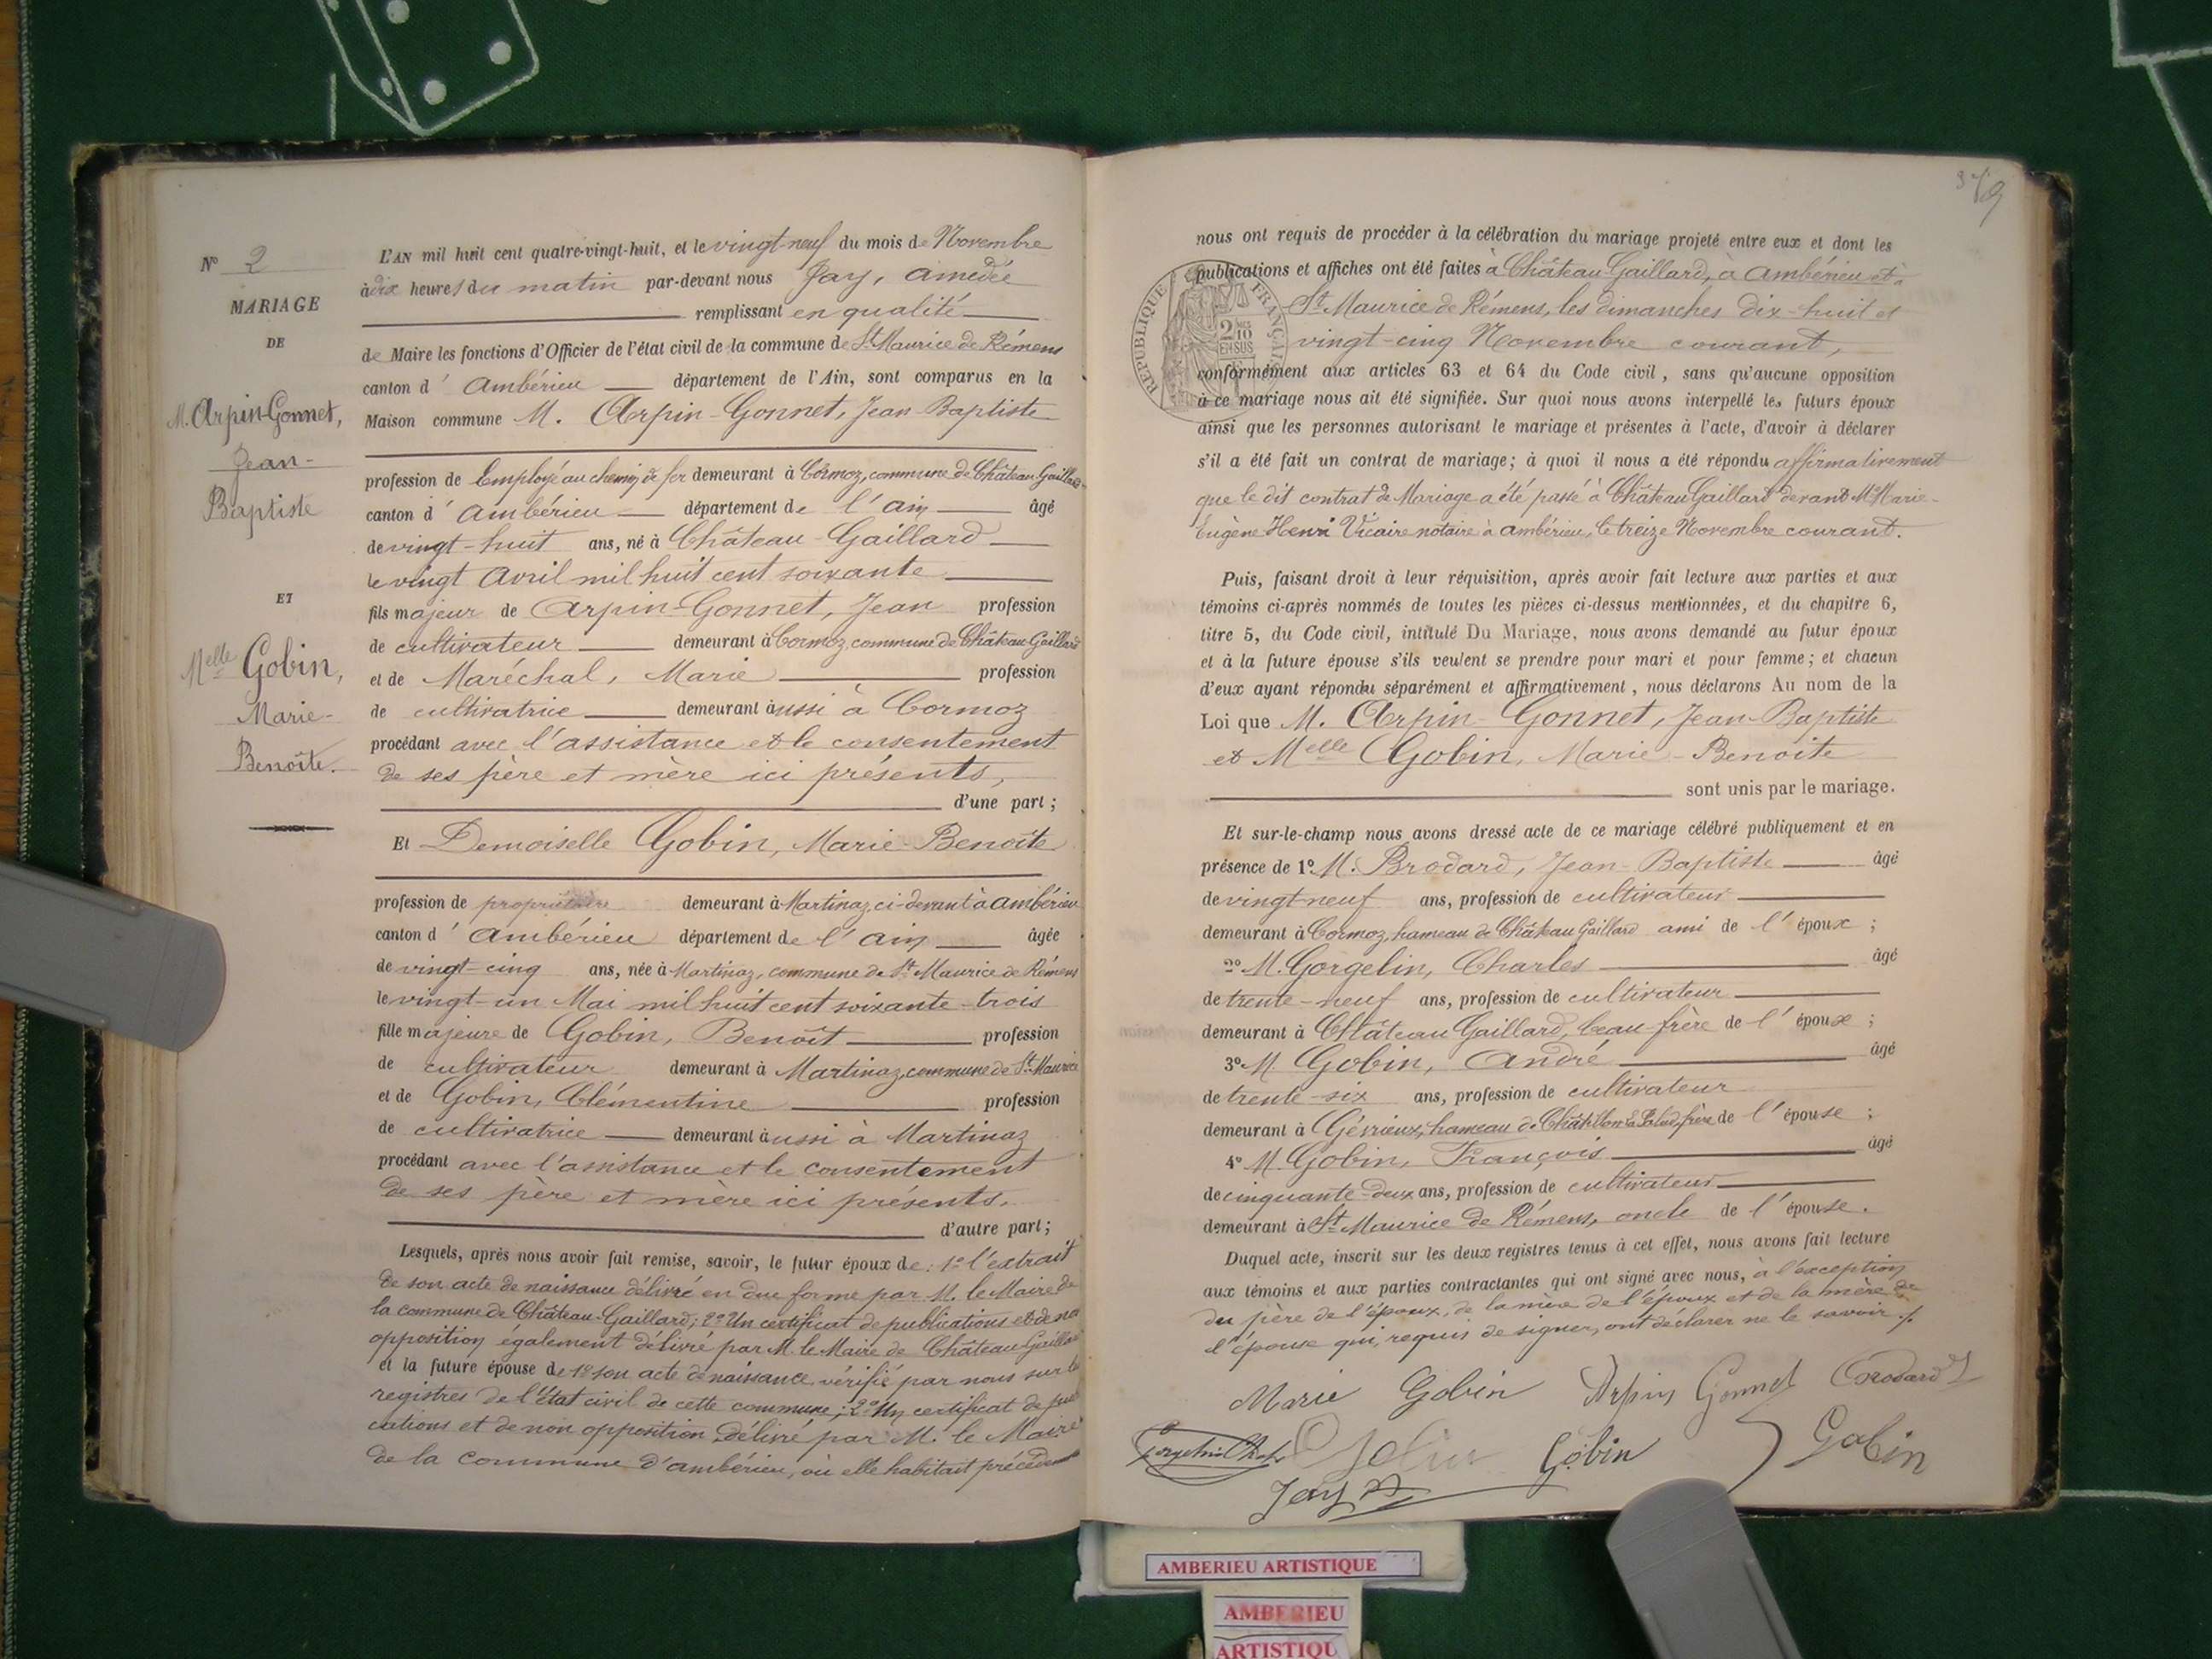 N° 2
MARIAGE
DE
M. Arpin-Gonnet,
Jean-
Baptiste
ET
Melle Gobin,
Marie-
Benoîte.
L'AN mil huit cent quatre-vingt-huit, et le vingt-neuf du mois de Novembre
à dix heures du matin par-devant nous Jay, Amédée
remplissant en qualité
de Maire les fonctions d'Officier de l'état civil de la commune de St Maurice de Rémens
canton d'Ambérieu département de l'Ain, sont comparus en la
Maison commune M. Arpin-Gonnet, Jean-Baptiste
profession de Employé au chemin de fer demeurant à Cormoz, commune de Château-Gaillard
canton d'Ambérieu département de l'Ain âgé
de vingt-huit ans, né à Château-Gaillard
le vingt Avril mil huit cent soixante
fils majeur de Arpin-Gonnet, Jean profession
de cultivateur demeurant à Cormoz, commune de Château-Gaillard
et de Maréchal, Marie profession
de cultivatrice demeurant aussi à Cormoz
procédant avec l'assistance et le consentement
de ses père et mère ici présents,
d'une part;
Et Demoiselle Gobin, Marie-Benoîte
profession de propriétaire demeurant à Martinaz, ci-devant à Ambérieu
canton d'Ambérieu département de l'Ain âgée
de vingt-cinq ans, née à Martinaz, commune de St Maurice de Rémens
le vingt-un Mai mil huit cent soixante-trois
fille majeure de Gobin, Benoît profession
de cultivateur demeurant à Martinaz, commune de St Maurice
et de Gobin, Clémentine profession
de cultivatrice demeurant aussi à Martinaz
procédant avec l'assistance et le consentement
de ses père et mère ici présents.
d'autre part;
Lesquels, après nous avoir fait remise, savoir, le futur époux de: 1° l'extrait
de son acte de naissance délivré en due forme par M. le Maire de
la commune de Château-Gaillard; 2° Un certificat de publications et de non
opposition également délivré par M. le Maire de Château Gaillard
et la future épouse de 1° son acte de naissance vérifié par nous sur le
registres de l'état civil de cette commune; 2° Un certificat de pu
cations et de non opposition délivré par M. le Maire
de la commune d'Ambérieu, où elle habitait précédem
379
nous ont requis de procéder à la célébration du mariage projeté entre eux et dont les
publications et affiches ont été faites à Château-Gaillard, à Ambérieu et à
St Maurice de Rémens, les dimanches dix-huit et
vingt-cinq Novembre courant,
conformément aux articles 63 et 64 du Code civil, sans qu'aucune opposition
à ce mariage nous ait été signifiée. Sur quoi nous avons interpellé les futurs époux
ainsi que les personnes autorisant le mariage et présentes à l'acte, d'avoir à déclarer
s'il a été fait un contrat de mariage; à quoi il nous a été répondu affirmativement
que le dit contrat de Mariage a été passé à Château Gaillard devant Me Marie-
Eugène Henri Vicaire notaire à Ambérieu, le treize Novembre courant.
RÉPUBLIQUE FRANÇAISE
2/10 EN SUS
Puis, faisant droit à leur réquisition, après avoir fait lecture aux parties et aux
témoins ci-après nommés de toutes les pièces ci-dessus mentionnées, et du chapitre 6,
titre 5, du Code civil, intitulé Du Mariage, nous avons demandé au futur époux
et à la future épouse s'ils veulent se prendre pour mari et pour femme; et chacun
d'eux ayant répondu séparément et affirmativement, nous déclarons Au nom de la
Loi que M. Arpin-Gonnet, Jean-Baptiste
et Melle Gobin, Marie-Benoîte
sont unis par le mariage.
Et sur-le-champ nous avons dressé acte de ce mariage célébré publiquement et en
présence de 1° M. Brodard, Jean-Baptiste âgé
de vingt neuf ans, profession de cultivateur
demeurant à Cormoz, hameau de Château Gaillard ami de l'époux;
2° M. Gorgelin, Charles âgé
de trente-neuf ans, profession de cultivateur
demeurant à Château Gaillard, beau-frère de l'épouse;
3° M. Gobin, André âgé
de trente-six ans, profession de cultivateur
demeurant à Gévrieux, hameau de Châtillon la Palud, frère de l'épouse;
4° M. Gobin, François âgé
de cinquante-deux ans, profession de cultivateur
demeurant à St Maurice de Rémens, oncle de l'épouse.
Duquel acte, inscrit sur les deux registres tenus à cet effet, nous avons fait lecture
aux témoins et aux parties contractantes qui ont signé avec nous, à l'exception
du père de l'époux, de la mère de l'époux et de la mère de
l'épouse qui, requis de signer, ont déclarer ne le savoir./.
Marie Gobin Arpin Gonnet Brodard
Gorgelin Ch Gobin Gobin
Jay
AMBERIEU ARTISTIQUE
AMBERIEU
ARTISTIQU